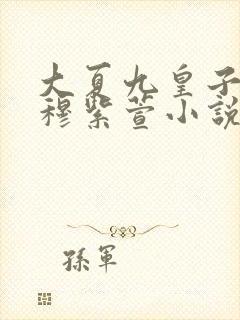 大夏九皇子
穆紫萱小說
孫軍